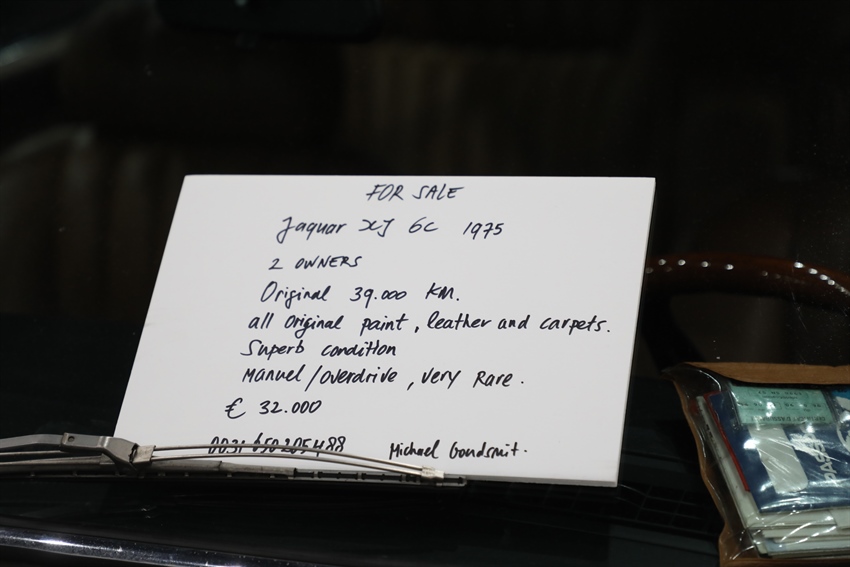 FOR SALE
Jaguar XJ 6C 1975
2 OWNERS
Original 39.000 KM.
all original paint, leather and carpets.
Superb condition
Manuel/overdrive, very Rare.
€ 32.000
Michael Goudsmit.